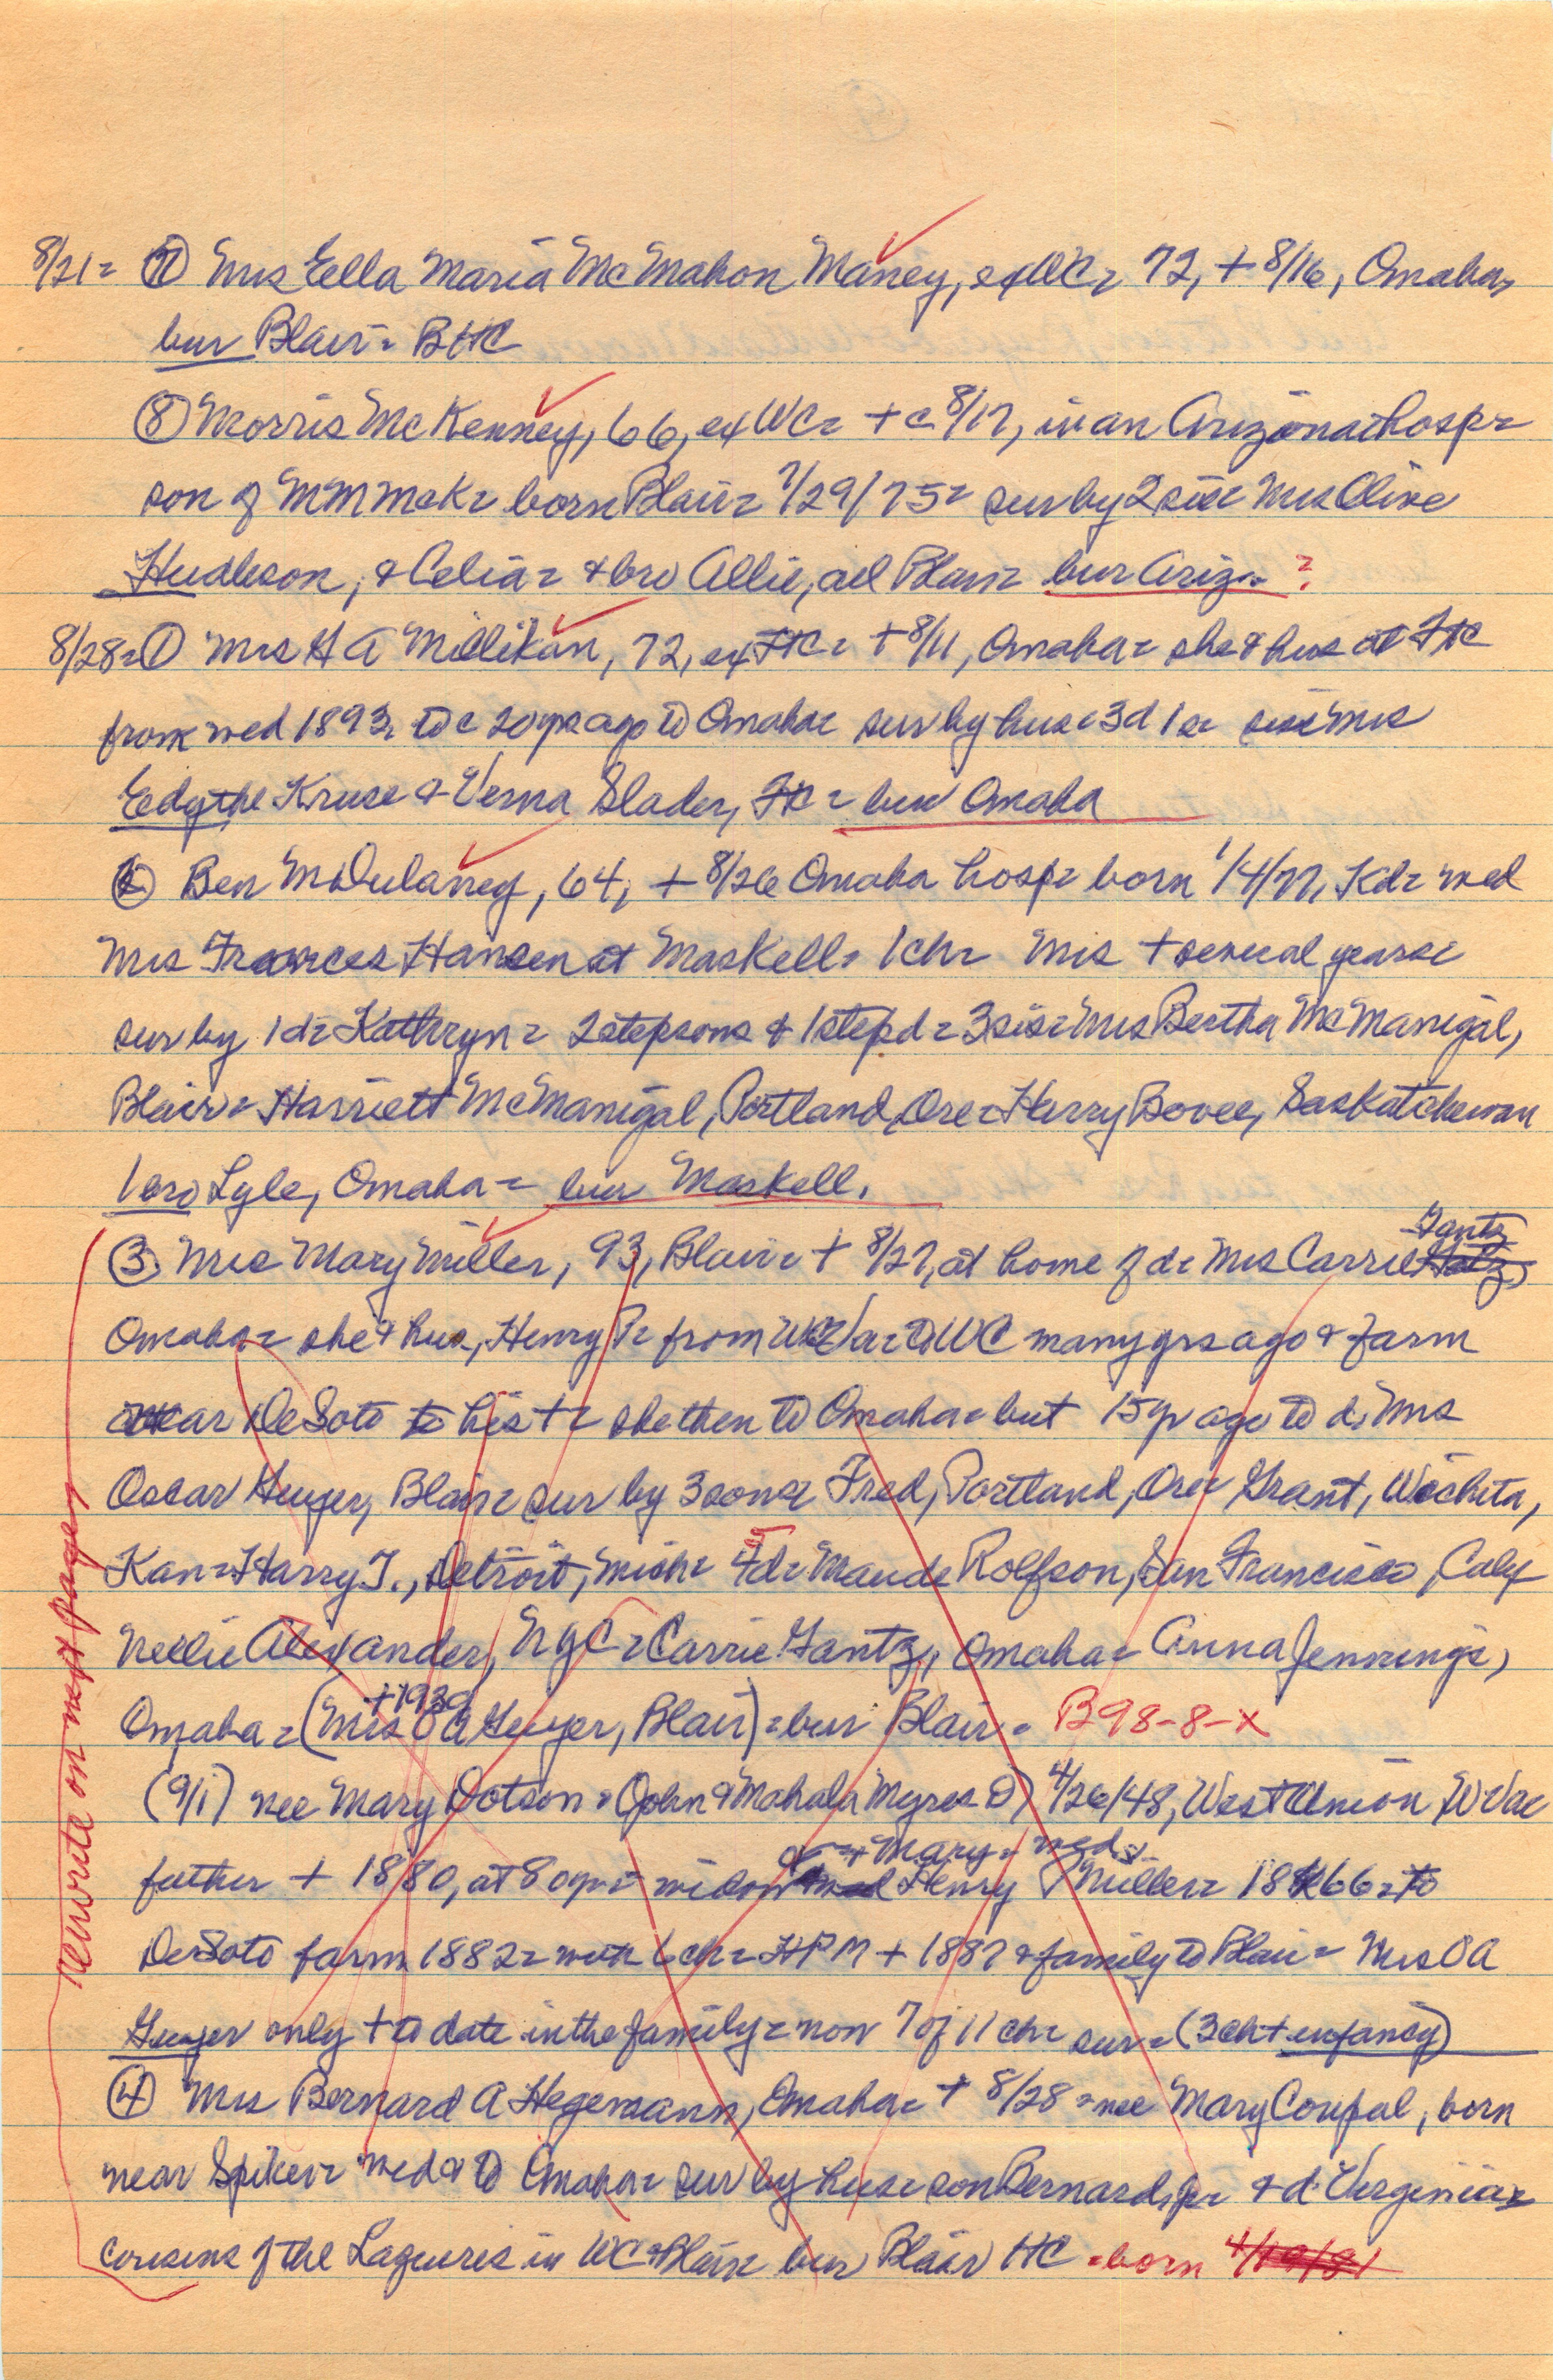 8/21= ⑦ Mrs Eella Maria McMahon Maney, exWC= 72, + 8/16, Omaha,
bur Blair= BHC
⑧ Morris McKenney, 66, exWC= + c 8/17, in an Arizona hosp=
son of MM McK= born Blair= 7/29/75= sur by 2 sis= Mrs Olive
Hudleson, & Celia= & bro Allie, all Blair= bur Ariz. ?
8/28= ① Mrs H A Millikan, 72, ex FtC= + 8/11, Omaha= she & hus at FtC
from wed 1893, to c 20 yrs ago to Omaha= sur by hus= 3d 1s= sis= Mrs
Eedythe Kruse & Verna Slader, FtC= bur Omaha
② Ben M Dulaney, 64, + 8/26 Omaha hosp= born 1/4/77, Kd= wed
Mrs Frances Hansen at Maskell= 1ch= Mrs + several years=
sur by 1d= Kathryn= 2 stepsons & 1 stepd= 3 sis= Mrs Bertha McManigal,
Blair= Harriett McManigal, Portland, Ore= Harry Bovee, Saskatchewan
1 bro Lyle, Omaha= bur Maskell.
Gantz
③ Mrs Mary Miller, 93, Blair= + 8/27, at home of d= Mrs Carrie
Omaha= she & hus, Henry P= from W Va= to WC many yrs ago & farm
near DeSoto to his += she then to Omaha= but 15 yr ago to d, Mrs
Oscar Guyer, Blair= sur by 3 sons= Fred, Portland, Ore= Grant, Wichita,
Kan= Harry J., Detroit, Mich= 4d= Maude Rolfson, San Francisco, Caly
Nellie Alexander, NYC= Carrie Gantz, Omaha= Anna Jennings,
+1939
Omaha= (Mrs O A Guyer, Blair)= bur Blair= B98-8-X
(9/1) nee Mary Dotson= (John & Mahala Myres D) 4/26/48, West Union, W Va=
& + Mary= wed
father + 1880, at 80 yr= widow Henry P Miller= 1866= to
DeSoto farm 1882= with 6 ch= HPM + 1887 & family to Blair= Mrs OA
Guyer only + to date in the family= now 7 of 11 ch= sur= (3ch + infancy)
④ Mrs Bernard A Hegemann, Omaha= + 8/28= nee Mary Coupal, born
near Spiker= wed & to Omaha= sur by hus= son Bernard, jr= & d Virginia=
cousins of the Laqueris in WC & Blair= bur Blair HC =born 4/19/81
rewrite on next page